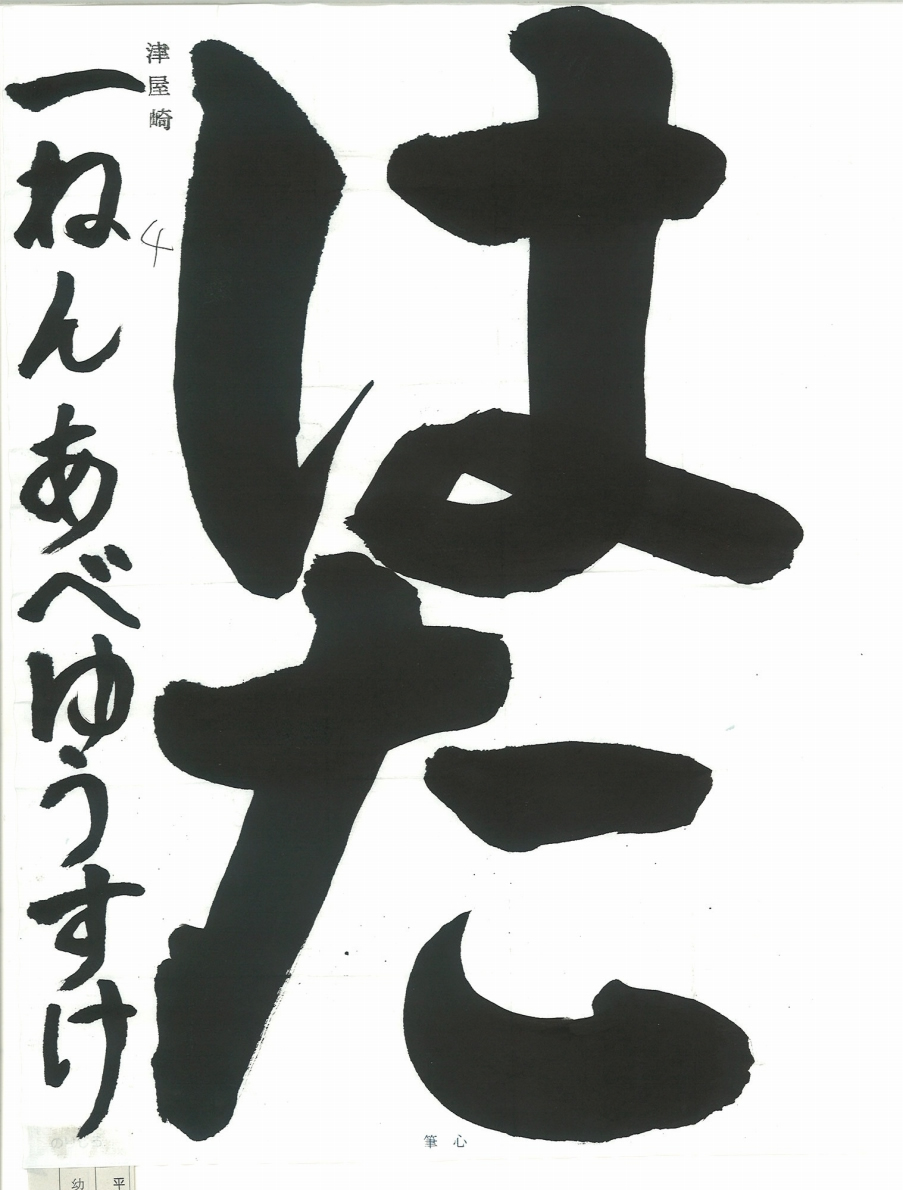 はた
津屋崎
4
一ねん あべゆうすけ
心筆
平
幼